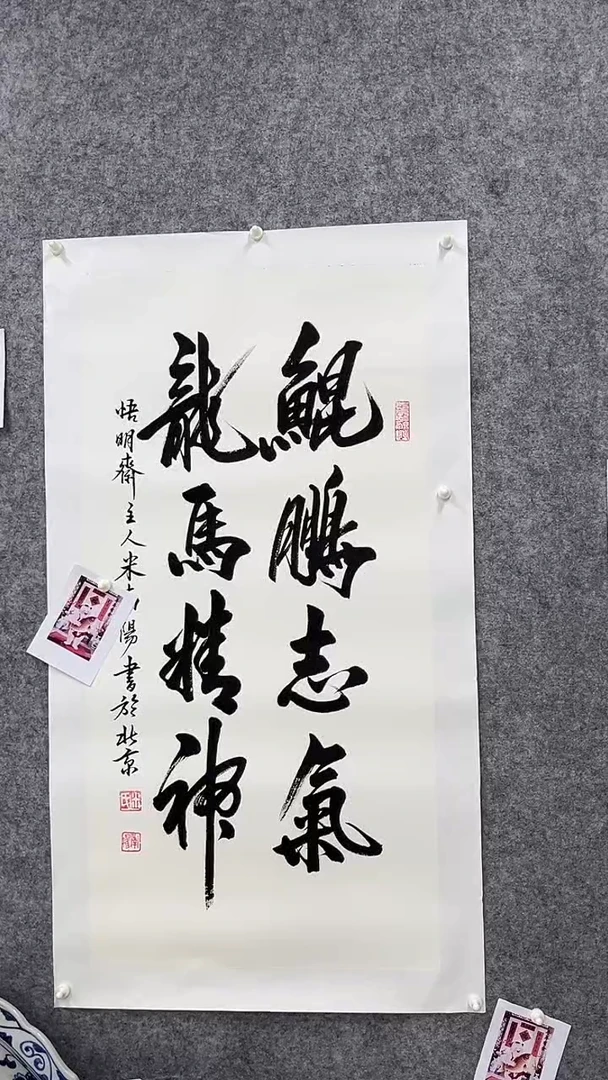 鯤鵬志氣
龍馬精神
悟明齋主人米陽書於北京